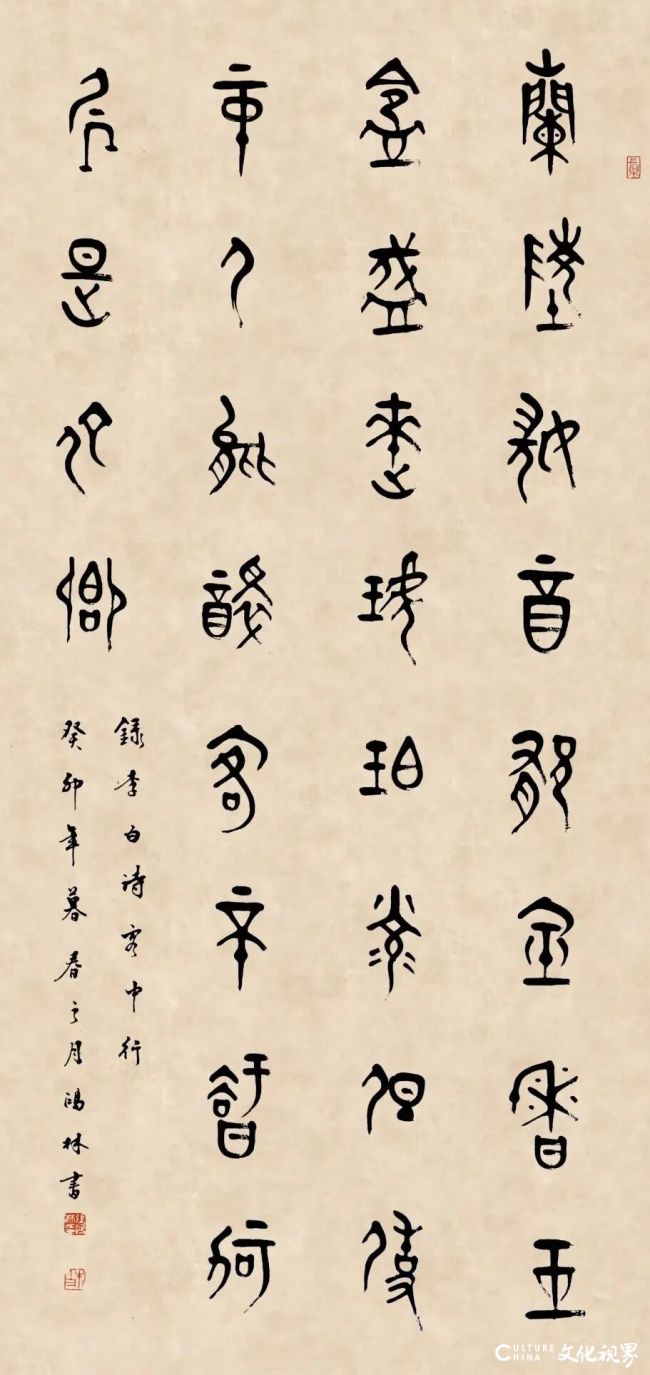 蘭陵美酒郁金香玉
盌盛來琥珀光但使
主人能醉客不知何
処是他鄉
錄李白詩客中行
癸卯年暮春之月鴻林書
CULTURE CHINA 文化视界